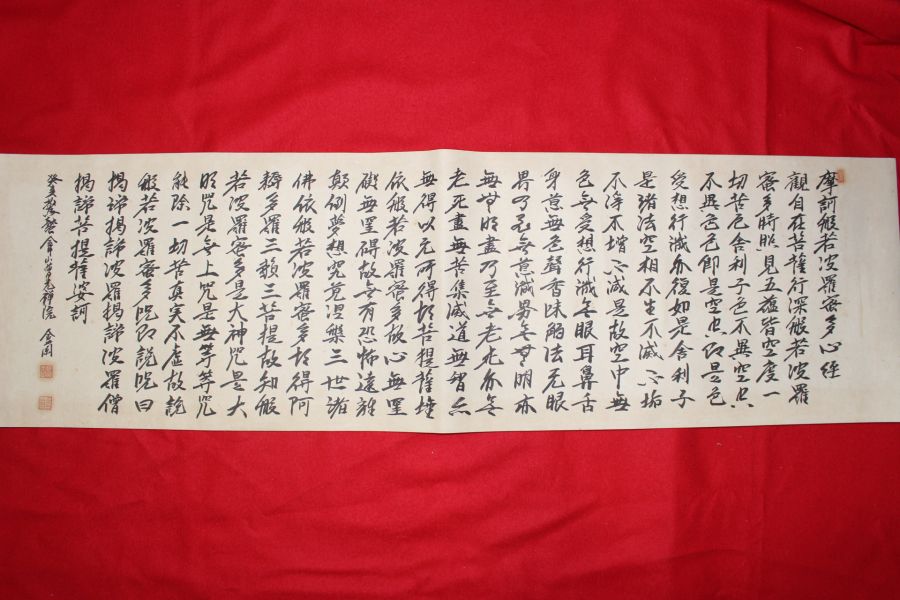 摩訶般若波羅蜜多心経
觀自在菩薩行深般若波羅
蜜多時照見五蕴皆空度一
切苦厄舍利子色不異空空
不異色色即是空空即是色
受想行識亦復如是舍利子
是諸法空相不生不滅不垢
不淨不增不減是故空中無
色無受想行識無眼耳鼻舌
身意無色聲香味触法无眼
界乃至無意識界無無明亦
無無明盡乃至無老死亦無
老死盡無苦集滅道無智亦
無得以无所得故菩提薩埵
依般若波羅蜜多故心無罣
礙無罣碍故無有恐怖遠離
顛倒夢想究竟涅槃三世諸
佛依般若波羅蜜多故得阿
耨多羅三藐三菩提故知般
若波羅蜜多是大神咒是大
明咒是無上咒是無等等咒
能除一切苦真実不虛故說
般若波羅蜜多咒即說咒曰
揭諦揭諦波羅揭諦波羅僧
揭諦菩提薩婆訶